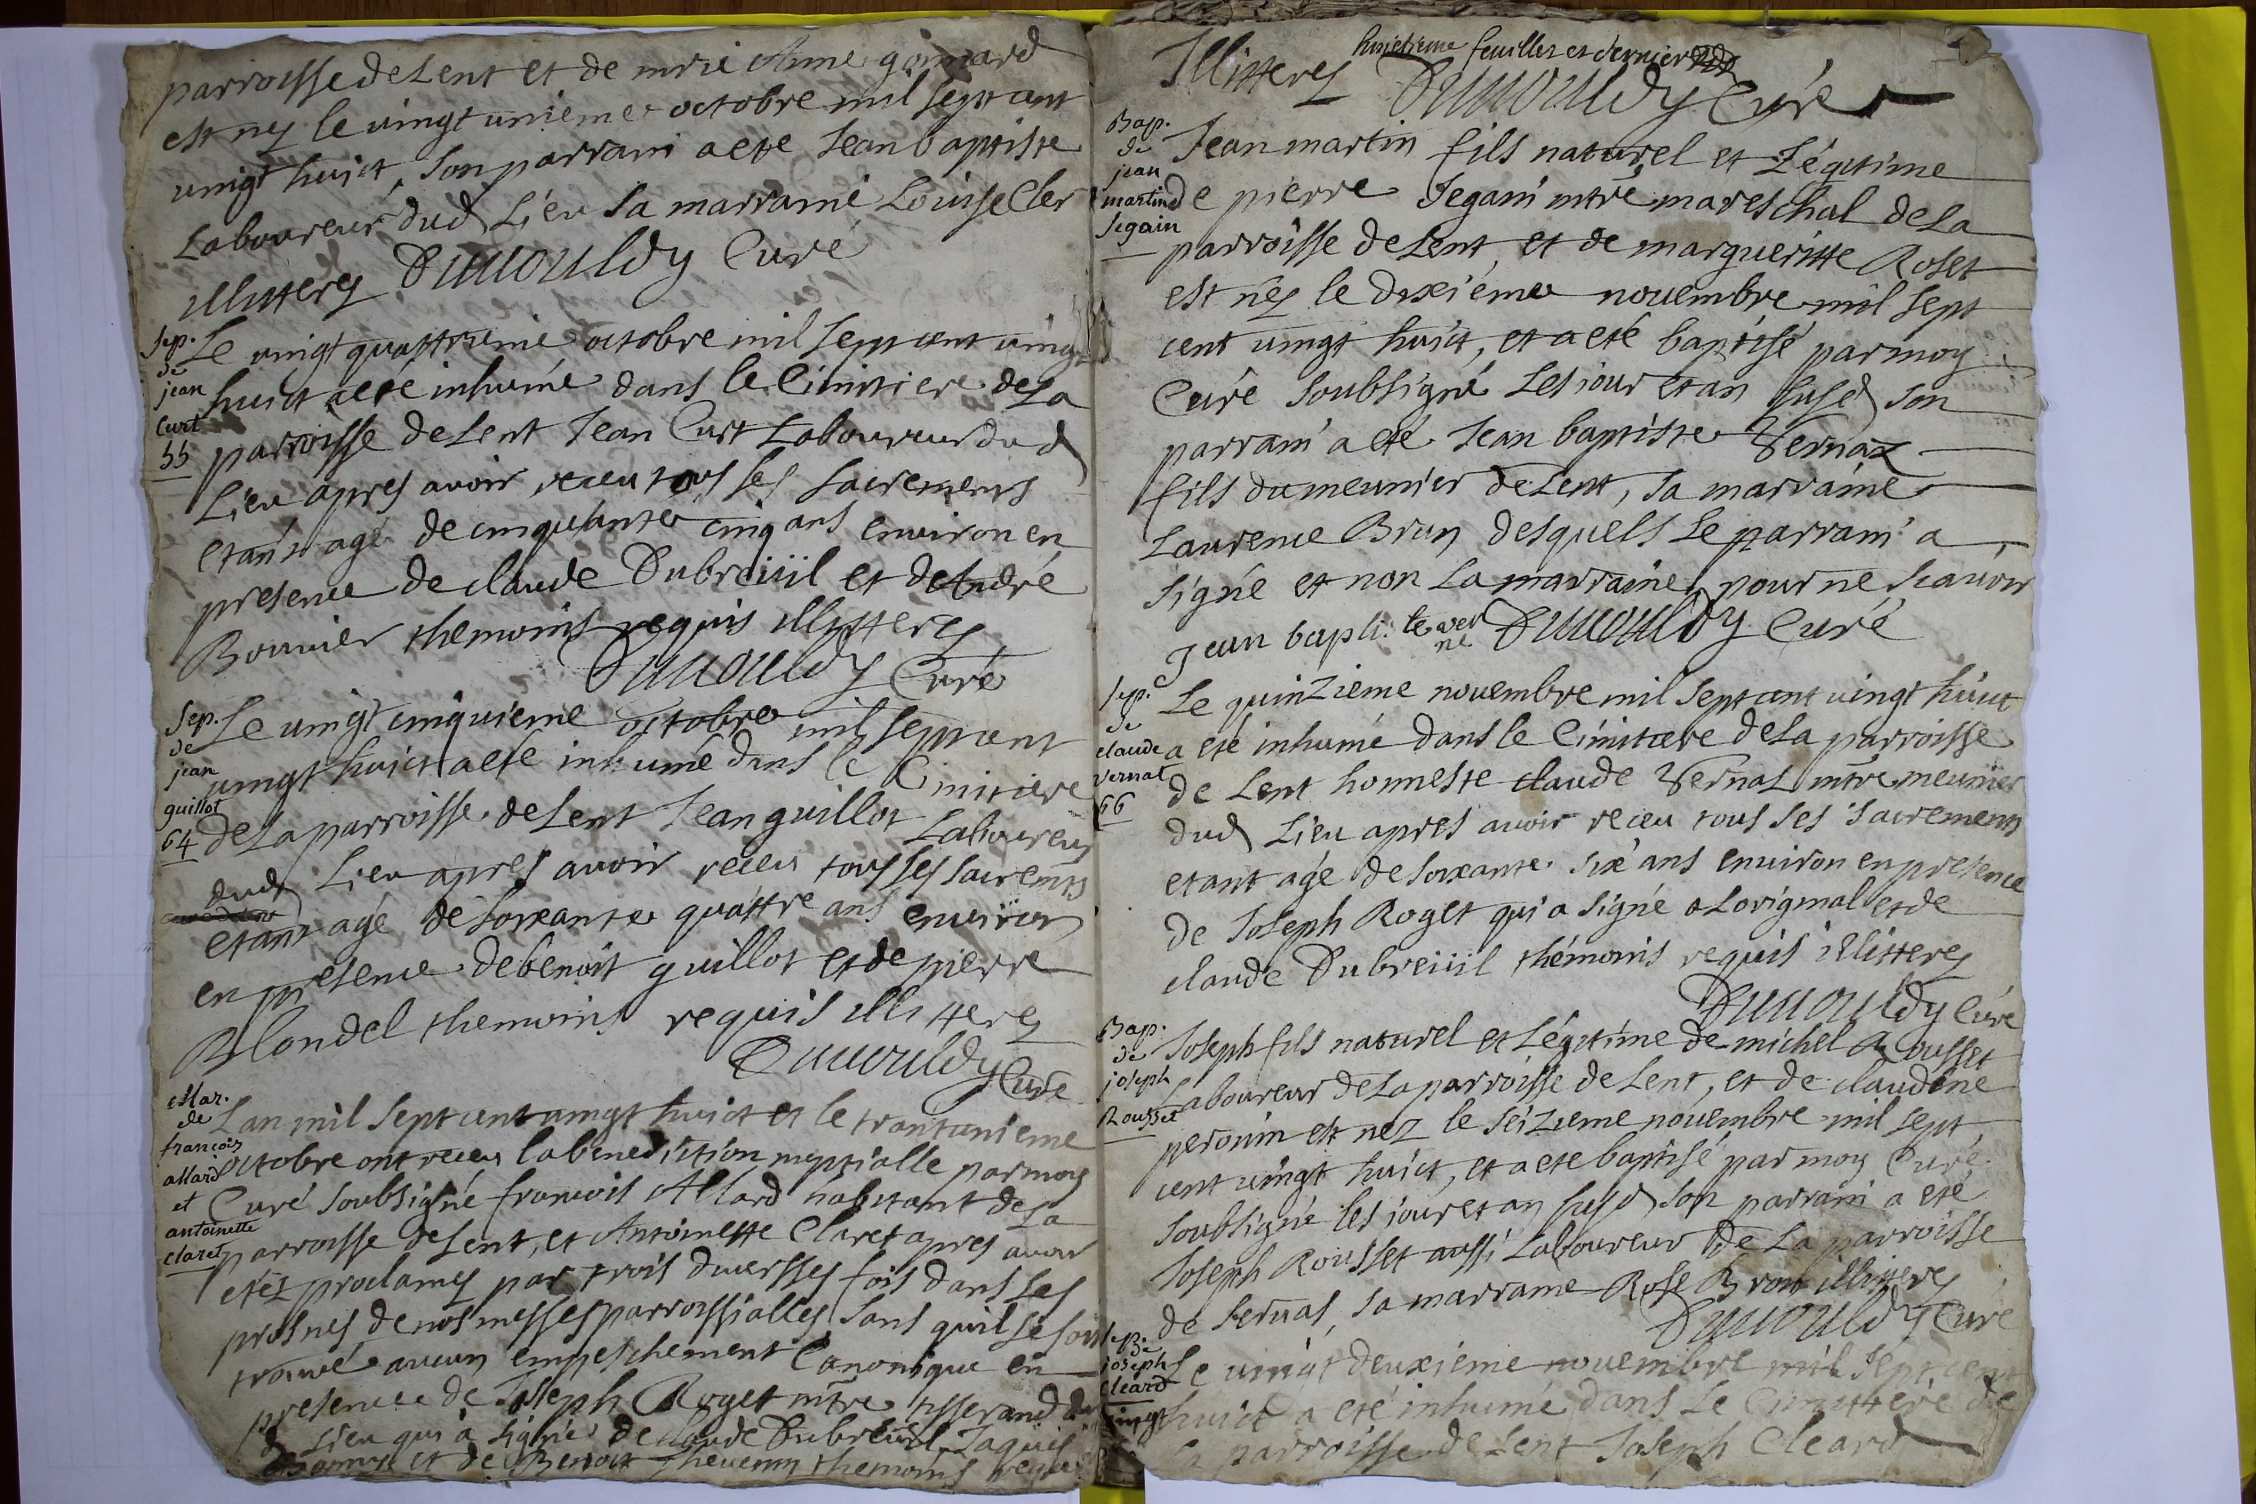 parroisse de Lent et de mrie Anne goimard
est nez le vingt unieme octobre mil sept cent
vingt huict, son parrain a eté Jean baptiste
Laboureur dud Lieu sa marraine Louise Cler
illitterez Dumouldy Curé
Sep.
de
jean
Curt
55
Le vingt quattrieme octobre mil sept cent vingt
huict a eté inhumé dans le Cimitiere de La
parroisse de Lent Jean Curt Laboureur dud
Lieu apres avoir receu tous ses sacrements
etant agé de cinquante cinq ans environ en
presence de claude Dubreüil et de André
Bouvier themoins requis illitterez
Dumouldy Curé
Sep.
de
jean
guillot
64
Le vingt cinquieme octobre mil sept cent
vingt huict a eté inhumé dans le Cimitiere
de La parroisse de Lent Jean guillot Laboureur
dud Lieu apres avoir receu tous ses sacremts
etant agé de soixante quattre ans environ
en presence de benoit guillot et de pierre
Blondel themoins requis illitterez
Dumouldy Curé
Mar.
de
françois
allard
et
antoinette
claret
Lan mil sept cent vingt huict et le trantunieme
octobre ont receu la benediction nuptialle par moy
Curé soubsigné francois Allard habitant de La
parroisse de Lent, et Antoinette Claret apres avoir
etéz proclamez par trois diversses fois dans les
prosnes de nos messes parroissialles sans quil se soit
trouvé aucun empeschement Canonique en
presence de Joseph Roget mtre tisserand dud
Lieu qui a signé de claude Dubreüil Jaques
et de Benoit thevenin themoins requis
huictieme feuillet et dernier
Illitterez Dumouldy Curé
Bap.
de
jean
martin
Segain
Jean martin fils naturel et Légitime
de pierre Segain mtre mareschal de La
parroisse de Lent, et de margueritte Roset
est néz le dixiéme novembre mil sept
cent vingt huict, et a eté baptisé par moy
Curé soubsigné les jour et an susd son
parrain a eté Jean baptiste Vernaz
fils du meunier de Lent, sa marraine
Laurence Brun desquels Le parrain a
signé et non La marraine pour ne scavoir
Jean baptiste verne Dumouldy Curé
Sep.
de
claude
vernat
66
Le quinzieme novembre mil sept cent vingt huict
a eté inhumé dans le Cimitiere de La parroisse
de Lent honneste claude Vernaz mtre meunier
dud Lieu apres avoir receu tous ses sacrements
etant agé de soixante six ans environ en presence
de Joseph Roget qui a signé a Loriginal et de
claude Dubreüil thémoins requis illitterez
Dumouldy Curé
Bap.
de
joseph
Rousset
Joseph fils naturel et Légitime de michel Rousset
Laboureur de La parroisse de Lent, et de claudine
peronin est nez le seizieme novembre mil sept
cent vingt huict, et a eté baptisé par moy Curé
soubsigné les jour et an susd son parrain a eté
Joseph Rousset aussi Laboureur de La parroisse
de servas, sa marraine Rose Bron illitterez
Dumouldy Curé
Sep.
de
joseph
cleard
vingt
Le vingt deuxieme novembre mil sept cent
huict a eté inhumé dans Le Cimittere de
La parroisse de Lent Joseph Cleard